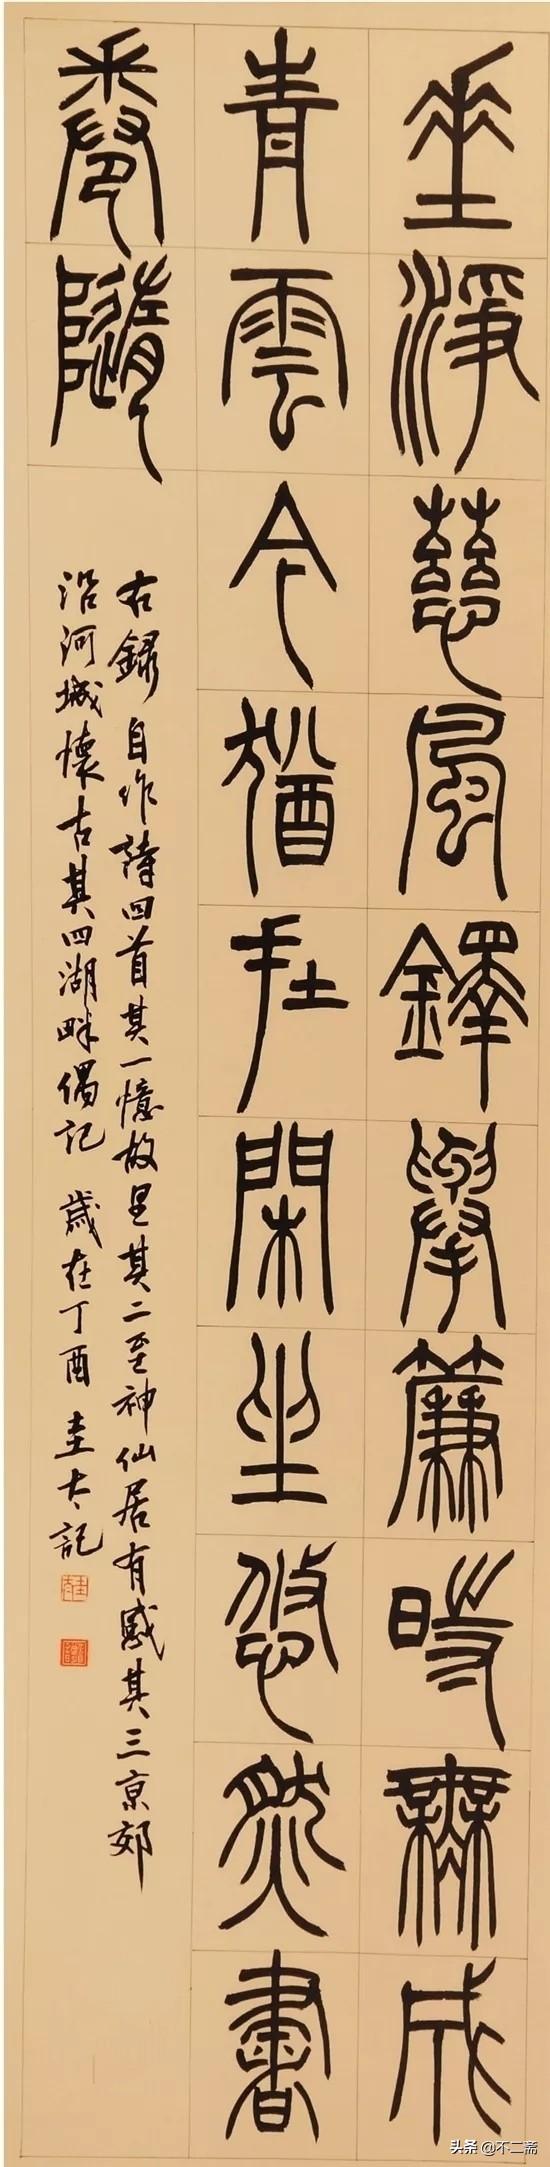 垂淨慈風鐸舉簾時無成
青雲今猶在閑坐悠然書
卷隨
右錄自作詩四首其一憶故里其二至神仙居有感其三京郊
沿河城懷古其四湖畔偶記 歲在丁酉 圭大記
头条 @不二斋